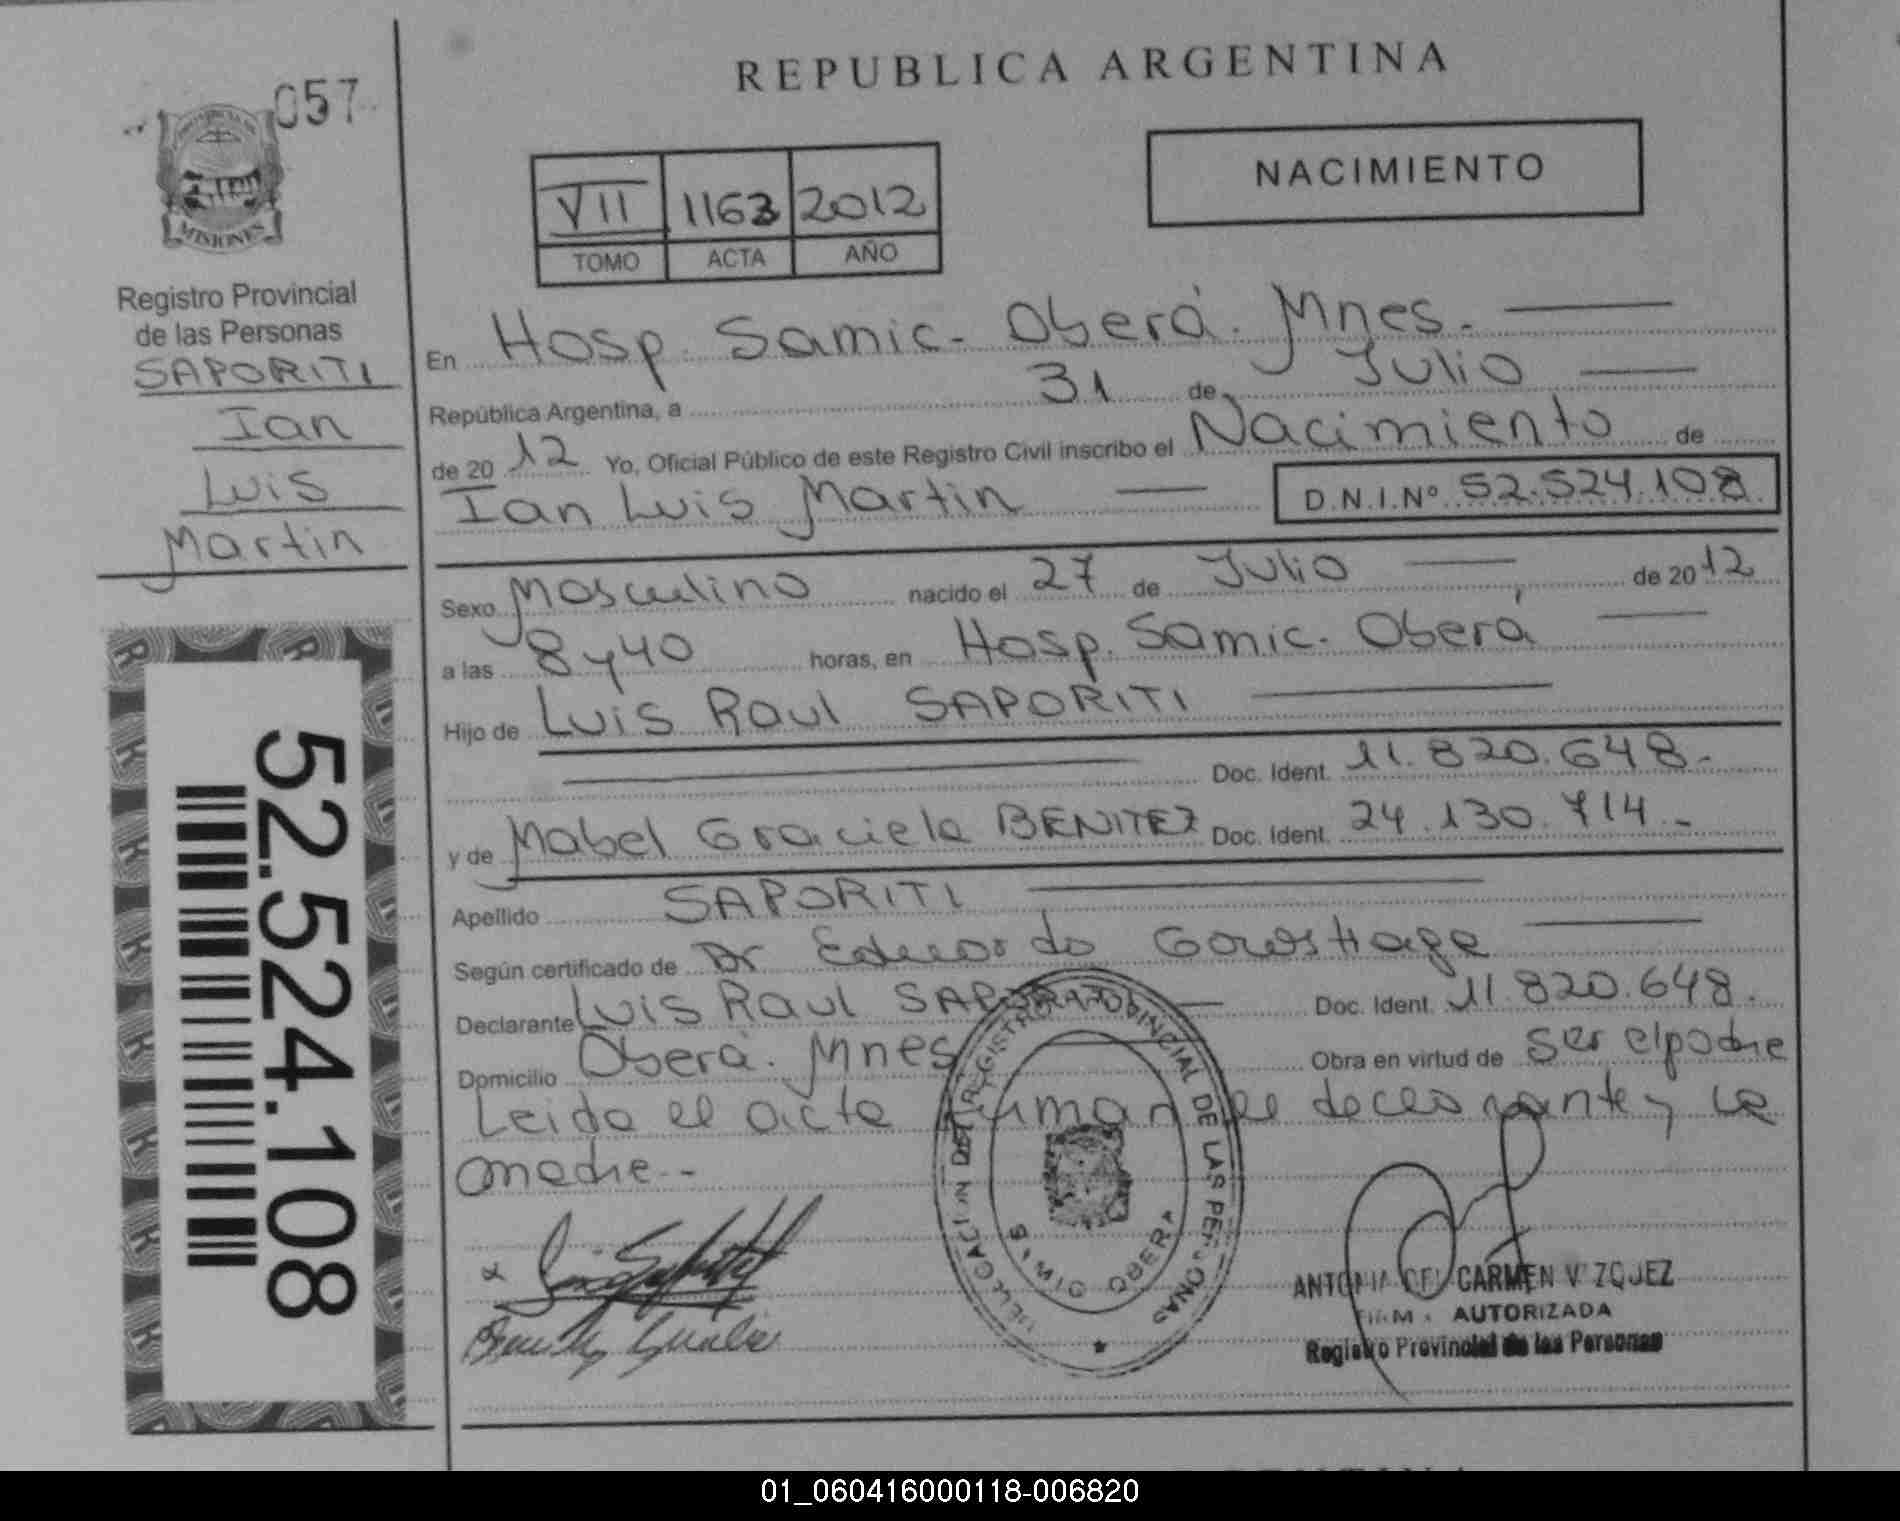 057
PROVINCIA DE
MISIONES
Registro Provincial
de las Personas
SAPORITI
Ian
Luis
Martin
52.524.108
REPUBLICA ARGENTINA
VII 1163 2012
TOMO ACTA AÑO
NACIMIENTO
En Hosp. Samic. Oberá. Mnes.
República Argentina, a 31 de Julio
de 20 12 Yo, Oficial Público de este Registro Civil inscribo el Nacimiento de
Ian Luis Martin D.N.I.Nº 52.524.108
Sexo Masculino nacido el 27 de Julio de 20 12
a las 8 y 40 horas, en Hosp. Samic. Oberá
Hijo de Luis Raul SAPORITI
Doc. Ident. 11.820.648.-
y de Mabel Graciela BENITEZ Doc. Ident. 24.130.714.-
Apellido SAPORITI
Según certificado de Dr Eduardo
Declarante Luis Raul SAPORITI Doc. Ident. 11.820.648.
Domicilio Oberá. Mnes Obra en virtud de ser el padre
Leida el acta firman el declarante y la
madre.-
DELEGACION DEL REGISTRO PROVINCIAL DE LAS PERSONAS
OBERA
ANTONIA DEL CARMEN VAZQUEZ
FIRMA AUTORIZADA
Registro Provincial de las Personas
01_060416000118-006820